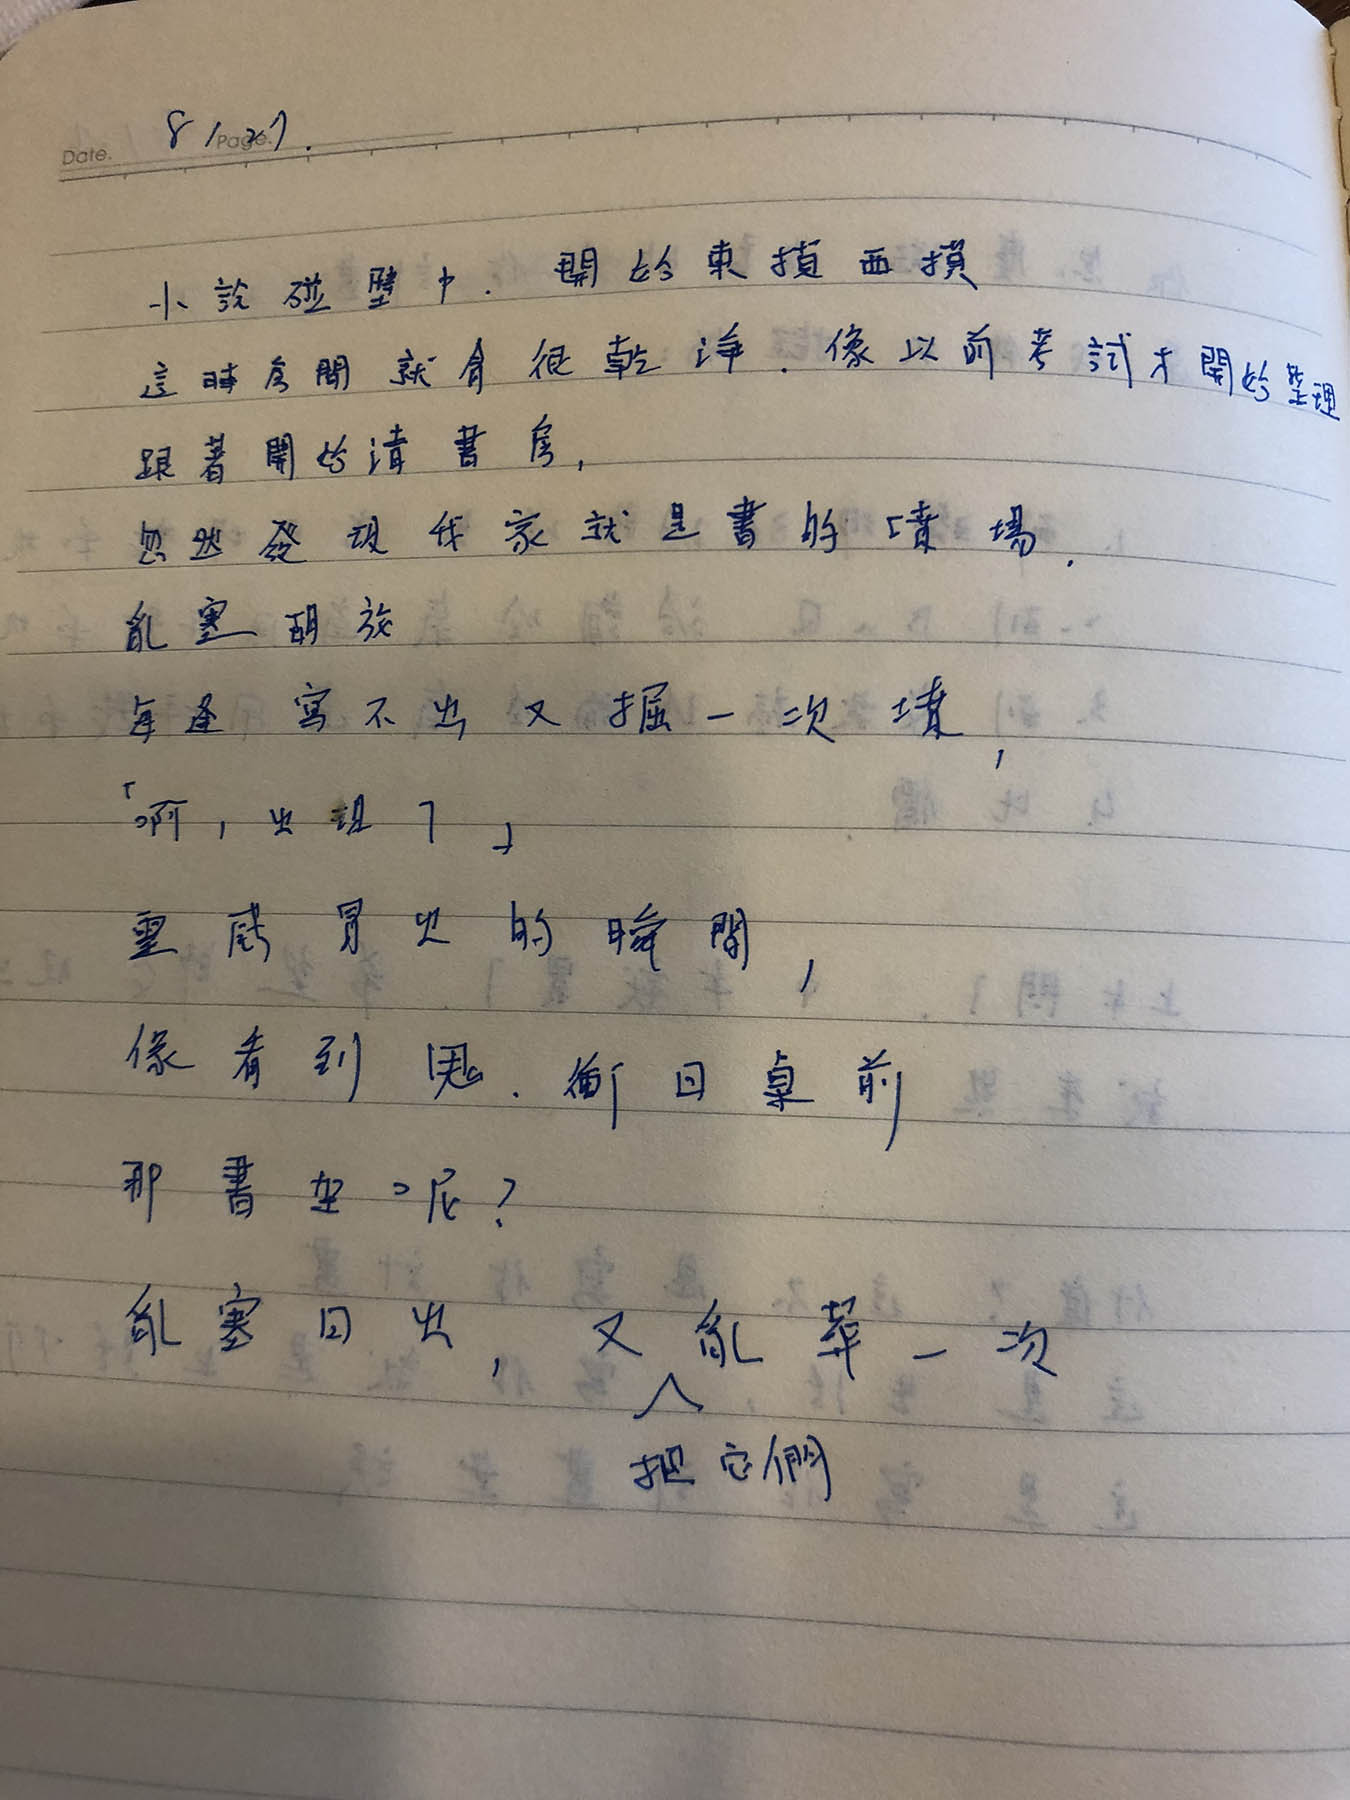 Date. 8/27. Page.
小說碰壁中.開始東摸西摸
這時房間就會很乾淨.像以前考試才開始整理
跟著開始清書房,
忽然發現我家就是書的墳場.
亂塞胡放
每逢寫不出又掘一次墳,
「啊,出現了」
靈感冒出的瞬間,
像看到鬼.衝回桌前
那書堆呢?
亂塞回去,又亂葬一次
把它們